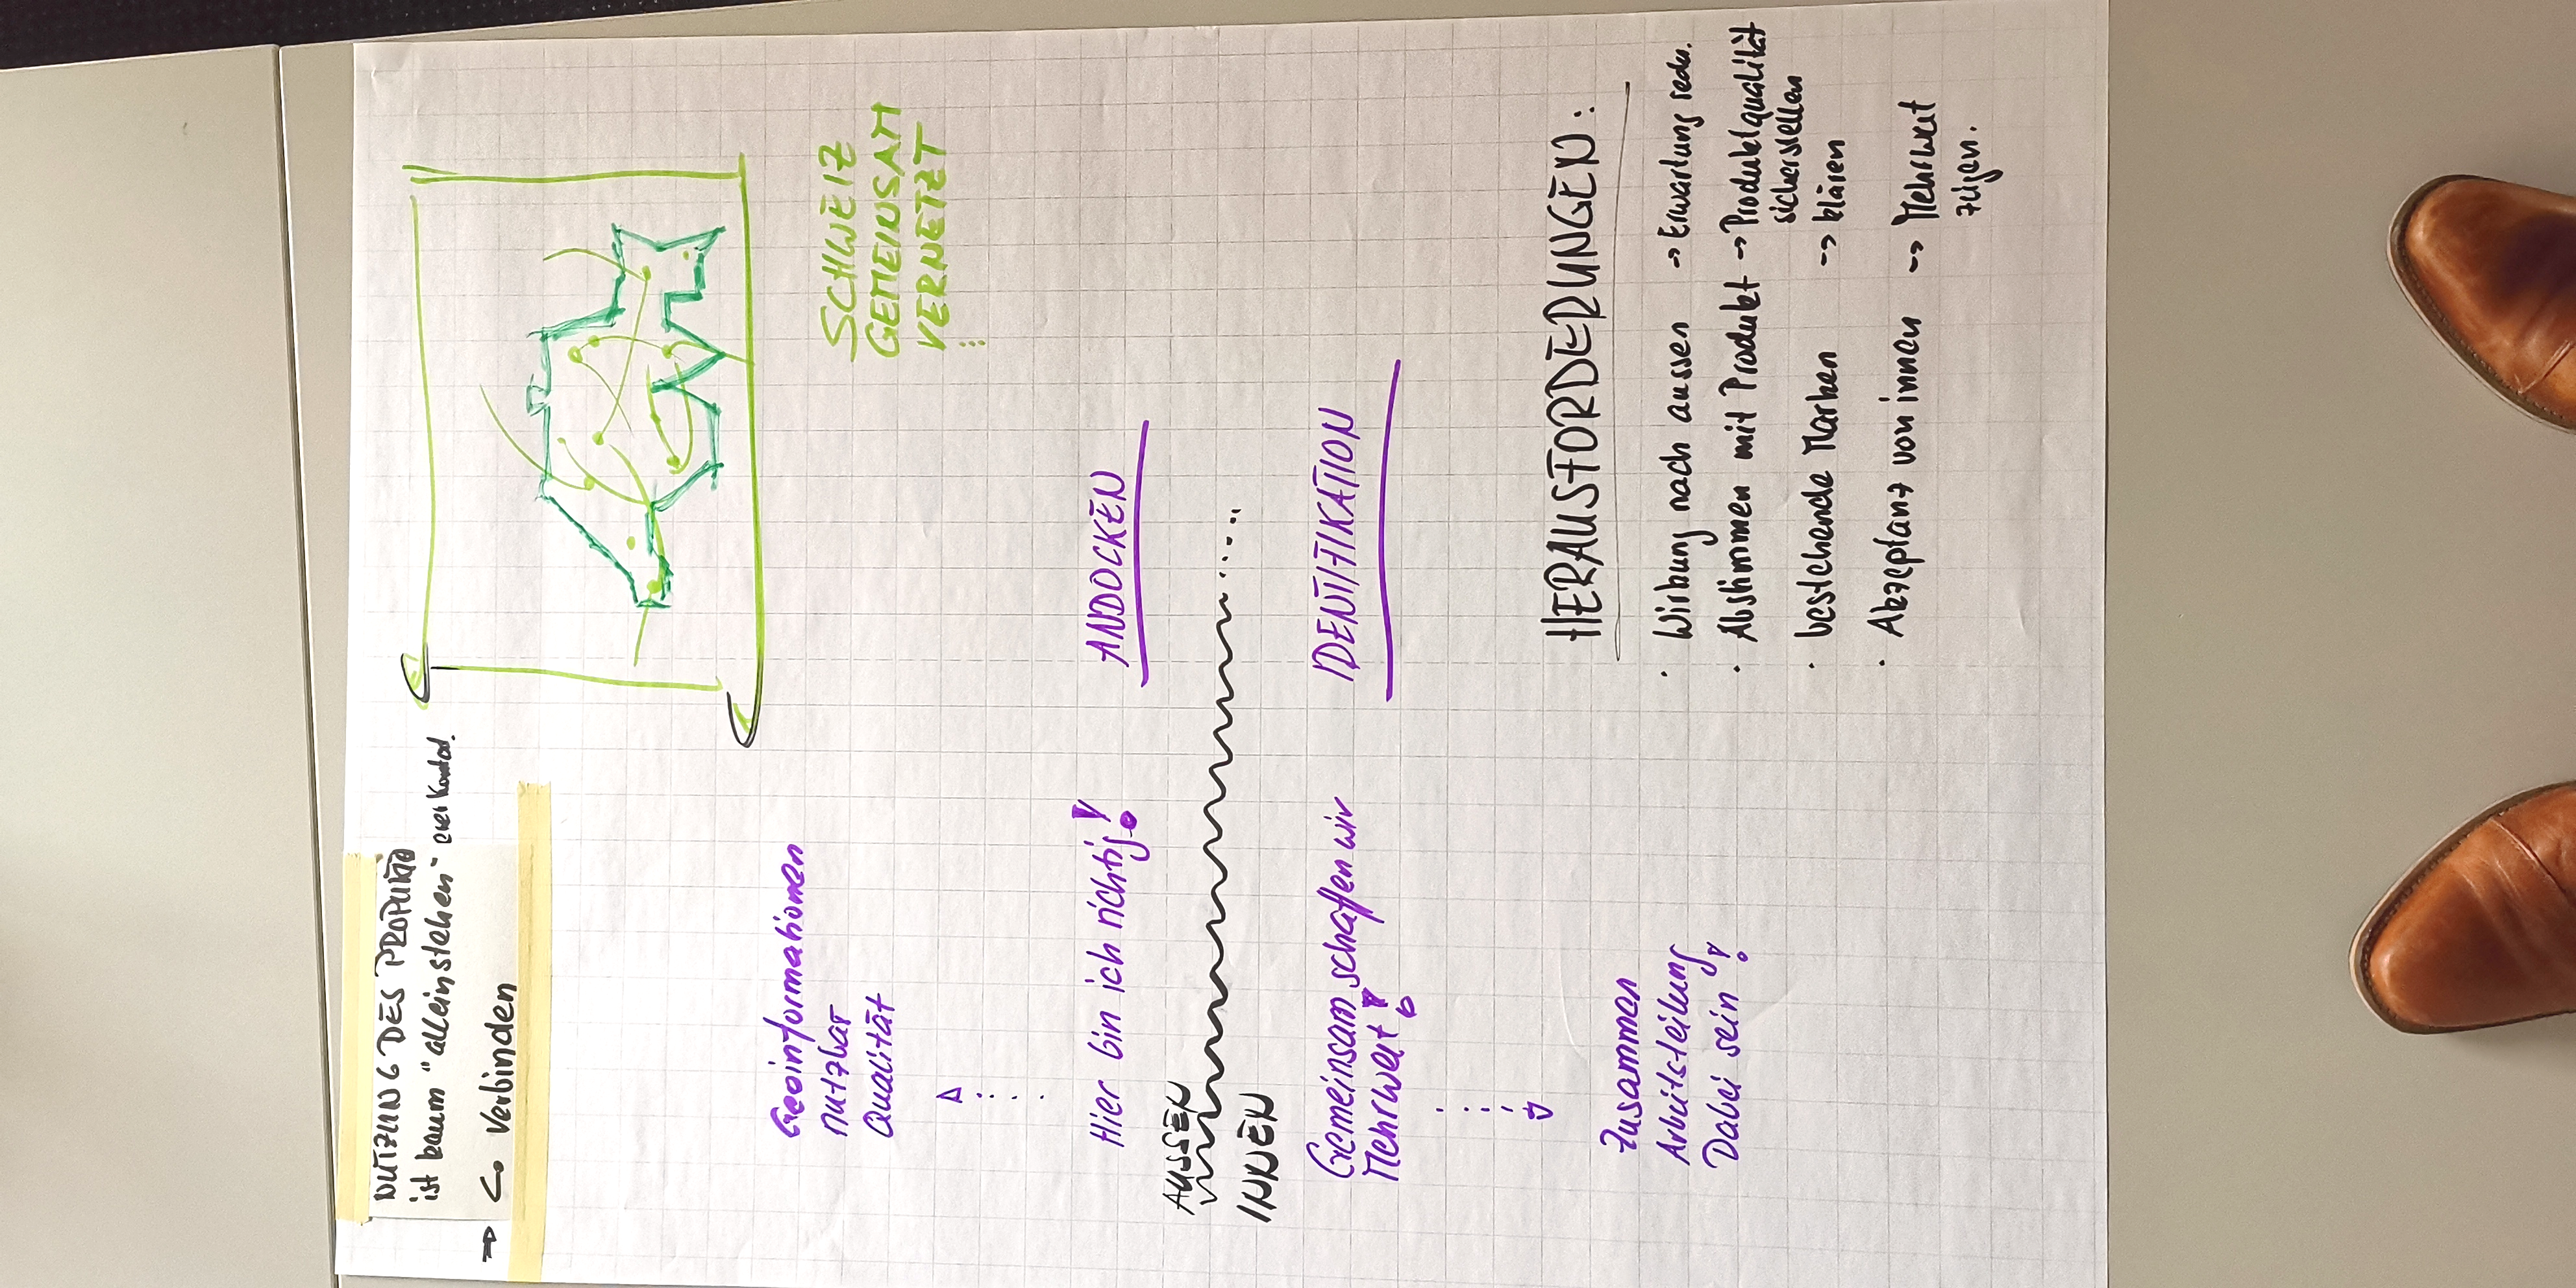 NUTZUNG DES PRODUKTS
ist kaum "alleinstehen"
→ Verbinden
SCHWEIZ
GEMEINSAM
VERNETZT
...
Geoinformationen
nutzbar
Qualität
Hier bin ich richtig!
ANDOCKEN
AUSSEN
INNEN
Gemeinsam schaffen wir
Mehrwert!
IDENTIFIKATION
Zusammen
Arbeitsteilung
Dabei sein!
HERAUSFORDERUNGEN:
· Wirkung nach aussen → Erwartung
· Abstimmen mit Produkt → Produktqualität
sicherstellen
· bestehende Marken → klären
· Akzeptanz von innen → Mehrwert
zeigen.